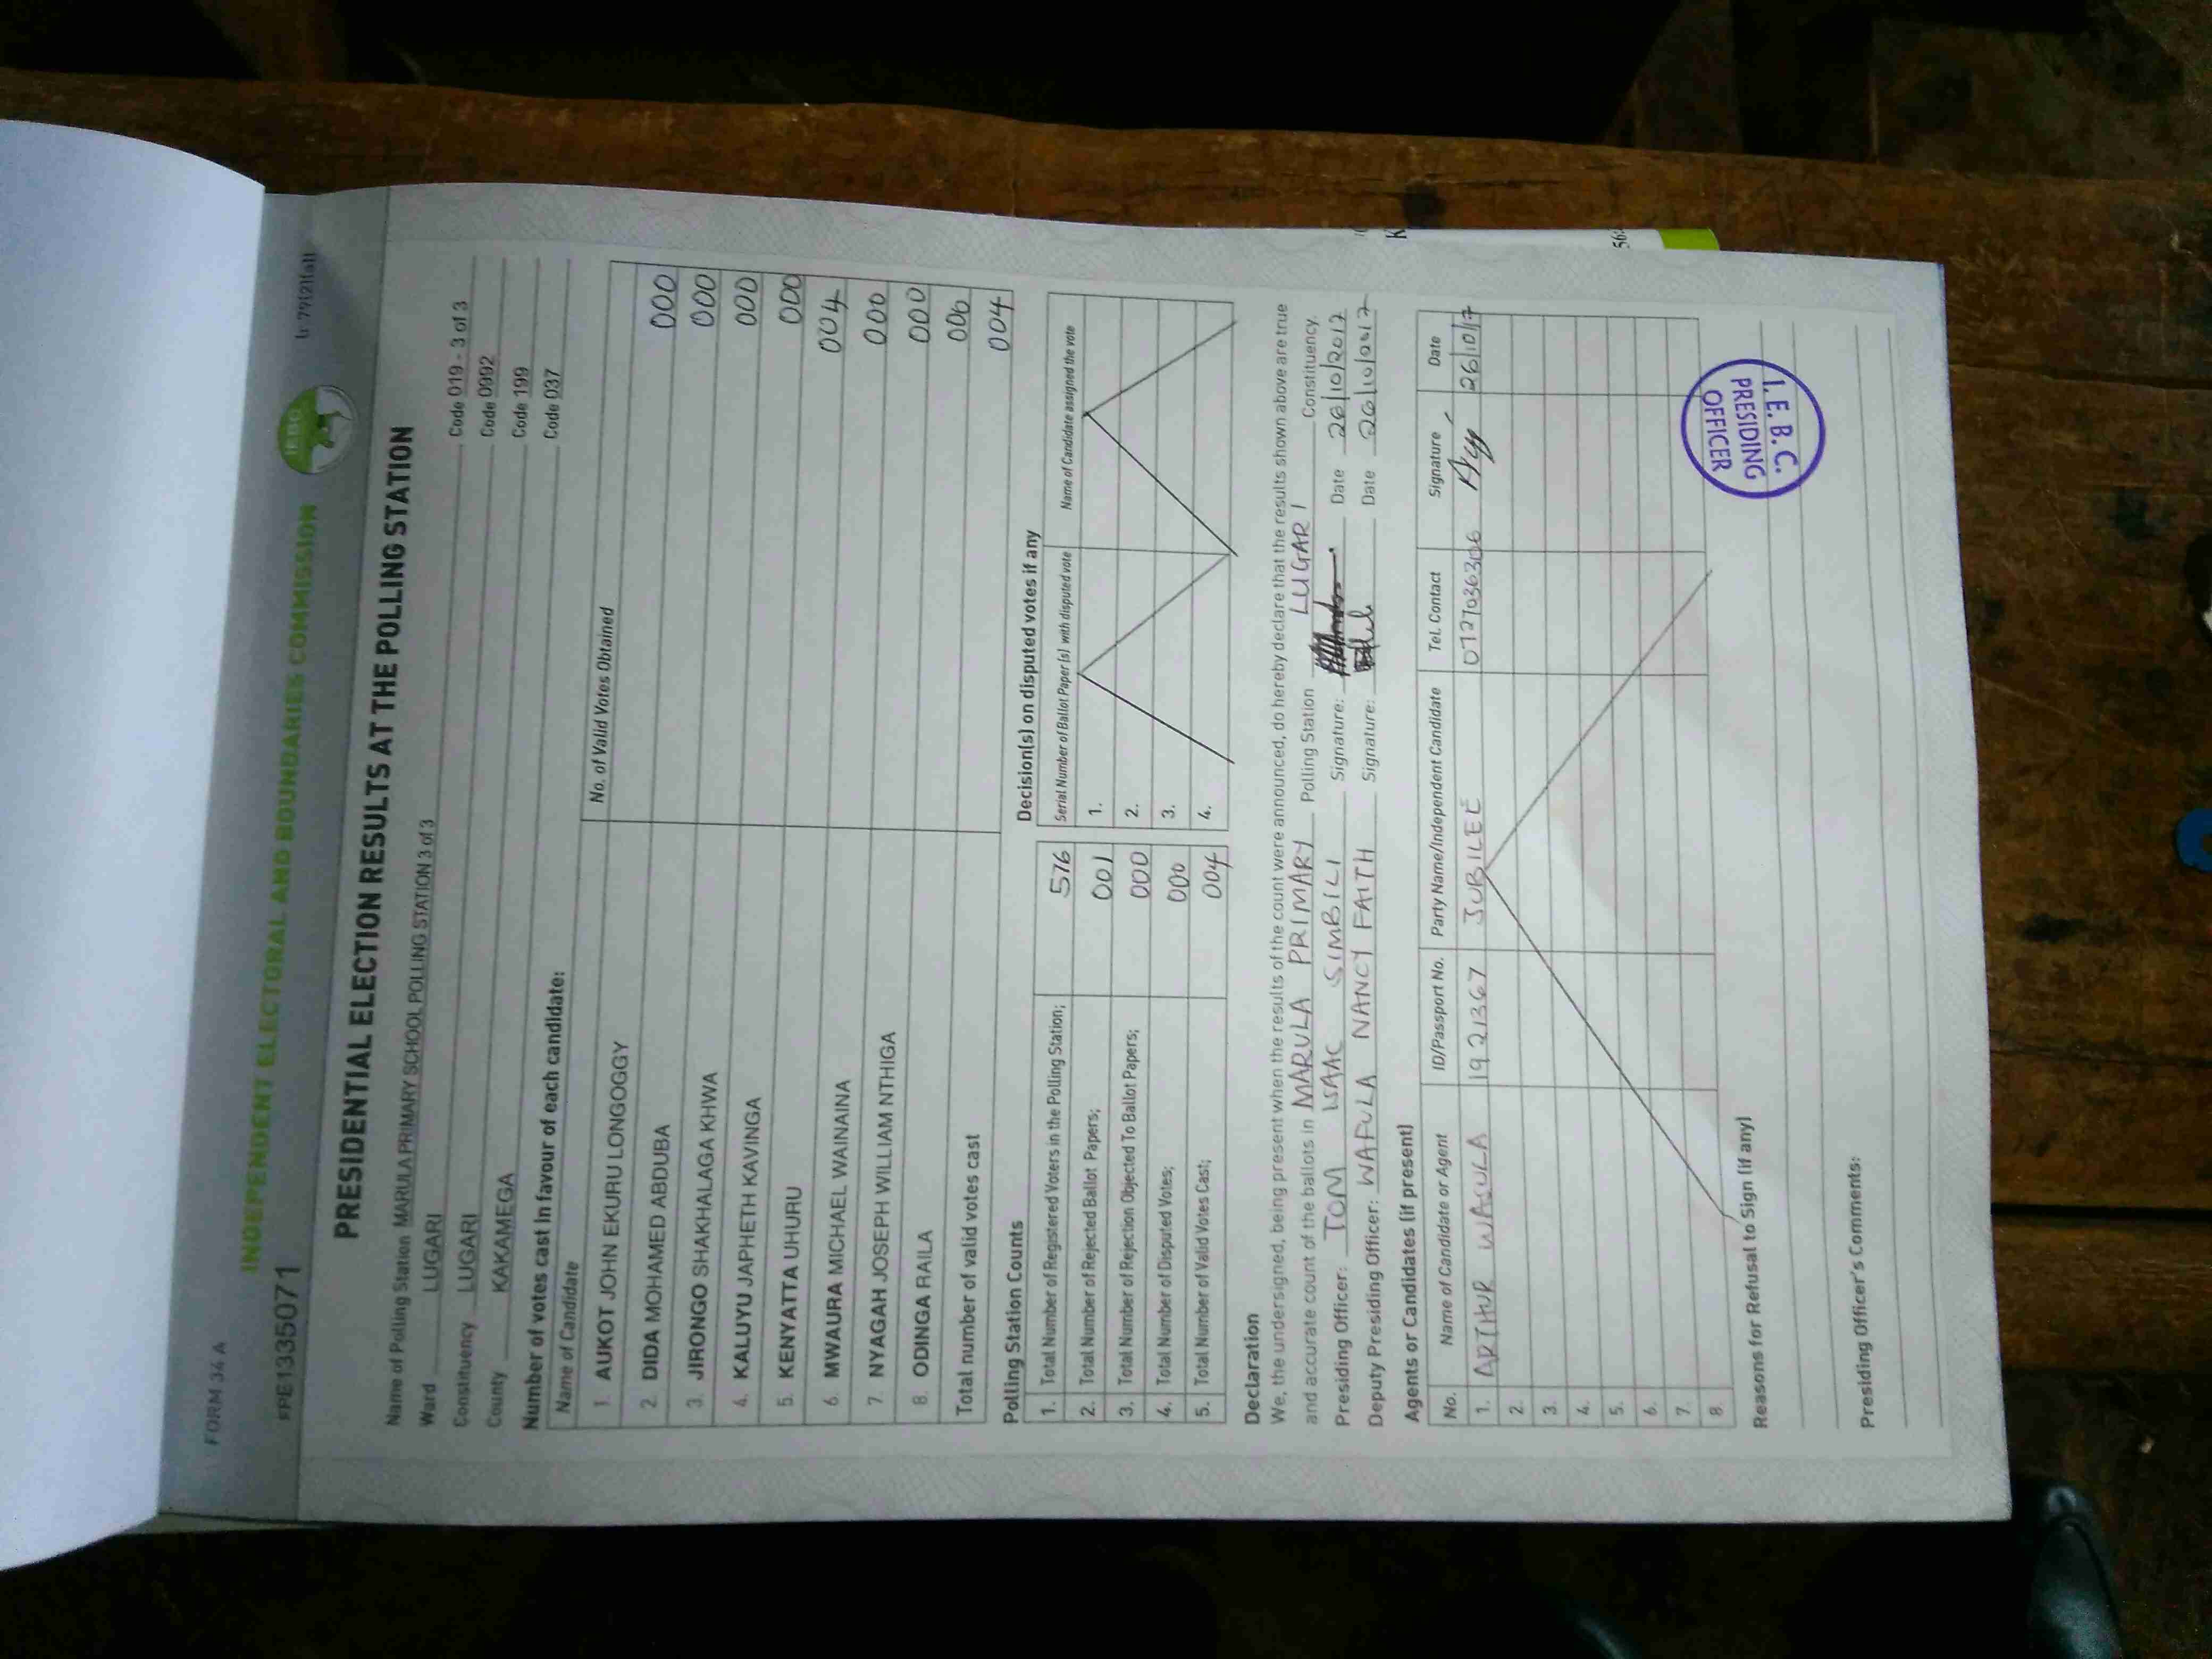 FORM 34 A
(r 79(2)(a))
INDEPENDENT ELECTORAL AND BOUNDARIES COMMISSION
IEBC
PRE1335071
PRESIDENTIAL ELECTION RESULTS AT THE POLLING STATION
Name of Polling Station MARULA PRIMARY SCHOOL POLLING STATION 3 of 3 Code 019 - 3 of 3
Ward LUGARI Code 0992
Constituency LUGARI Code 199
County KAKAMEGA Code 037
Number of votes cast in favour of each candidate:
Name of Candidate No. of Valid Votes Obtained
1. AUKOT JOHN EKURU LONGOGGY 000
2. DIDA MOHAMED ABDUBA 000
3. JIRONGO SHAKHALAGA KHWA 000
4. KALUYU JAPHETH KAVINGA 000
5. KENYATTA UHURU 004
6. MWAURA MICHAEL WAINAINA 000
7. NYAGAH JOSEPH WILLIAM NTHIGA 000
8. ODINGA RAILA 000
Total number of valid votes cast 004
Polling Station Counts
1. Total Number of Registered Voters in the Polling Station; 576
2. Total Number of Rejected Ballot Papers; 001
3. Total Number of Rejection Objected To Ballot Papers; 000
4. Total Number of Disputed Votes; 000
5. Total Number of Valid Votes Cast; 004
Decision(s) on disputed votes if any
Serial Number of Ballot Paper(s) with disputed vote Name of Candidate assigned the vote
1.
2.
3.
4.
Declaration
We, the undersigned, being present when the results of the count were announced, do hereby declare that the results shown above are true
and accurate count of the ballots in MARULA PRIMARY Polling Station LUGARI Constituency.
Presiding Officer: TOM ISAAC SIMBILI Signature: Date 26/10/2017
Deputy Presiding Officer: WAFULA NANCY FAITH Signature: Date 26/10/2017
Agents or Candidates (if present)
No. Name of Candidate or Agent ID/Passport No. Party Name/Independent Candidate Tel. Contact Signature Date
1. ARTHUR WAGULA 1921367 JUBILEE 0727036306 26/10/17
2.
3.
4.
5.
6.
7.
8.
I.E.B.C.
PRESIDING
OFFICER
Reasons for Refusal to Sign (if any)
Presiding Officer's Comments:
K
56: